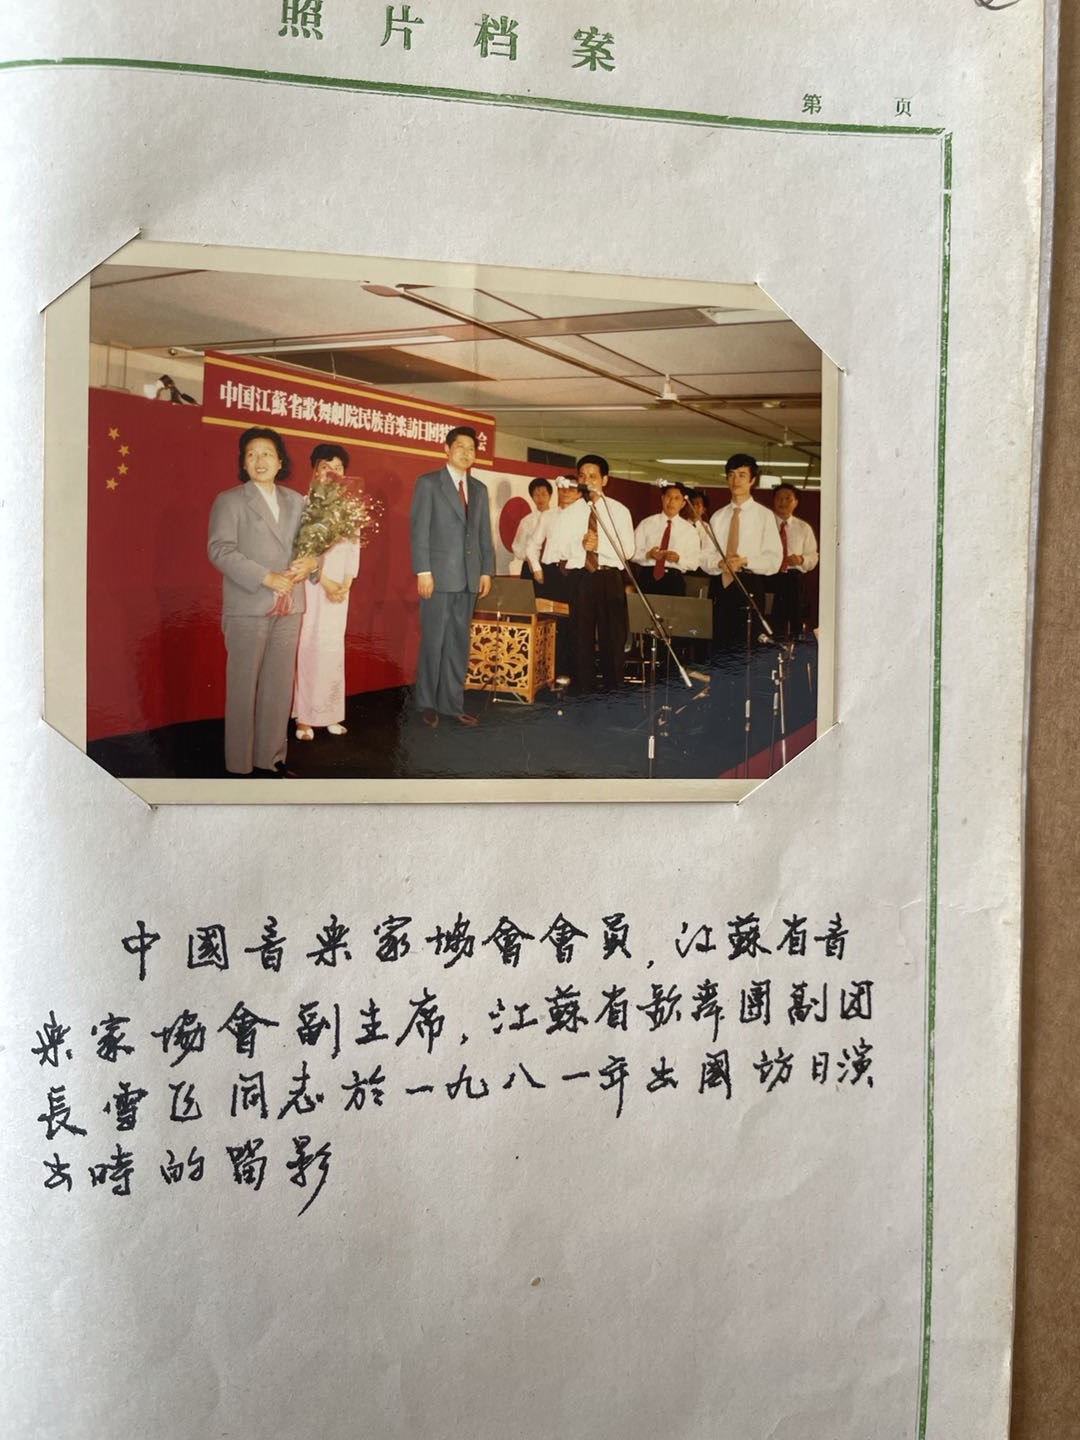 照片档案
第 页
中国江蘇省歌舞劇院民族音楽訪日團特 会
中國音楽家協會會員，江蘇省音
楽家協會副主席，江蘇省歌舞團副团
長雪飞同志於一九八一年出國訪日演
出時的留影